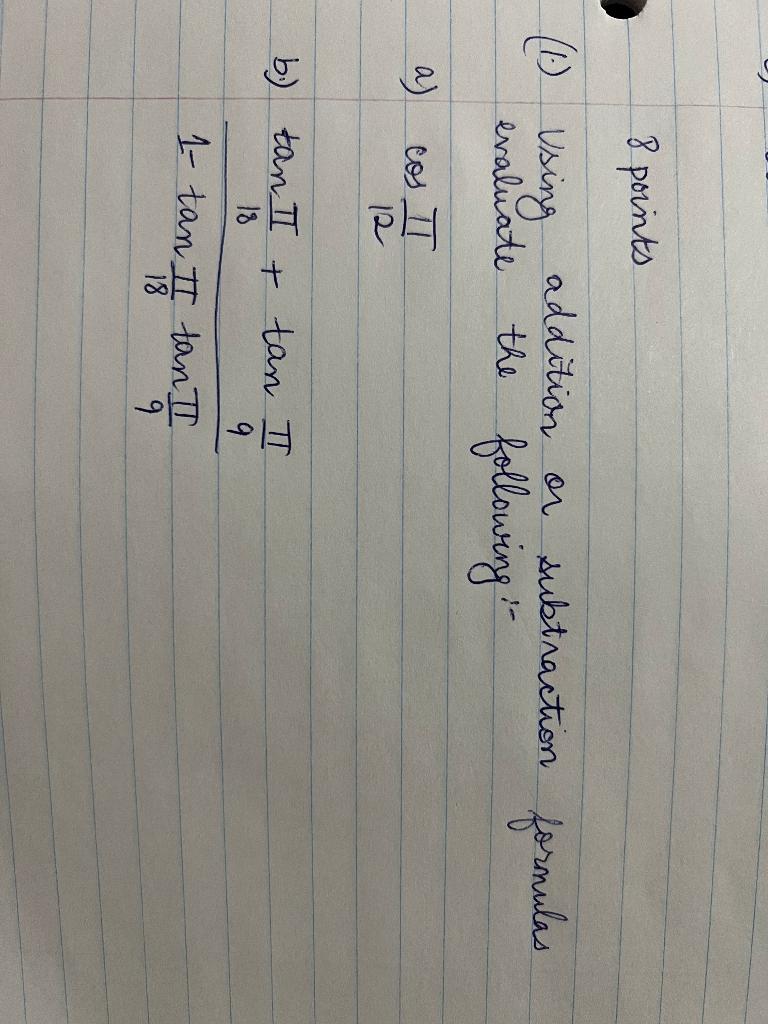 8 points
(1.) Using addition or subtraction formulas
evaluate the following :-
a) cos π/12
b.) tan π/18 + tan π/9
1 - tan π/18 tan π/9